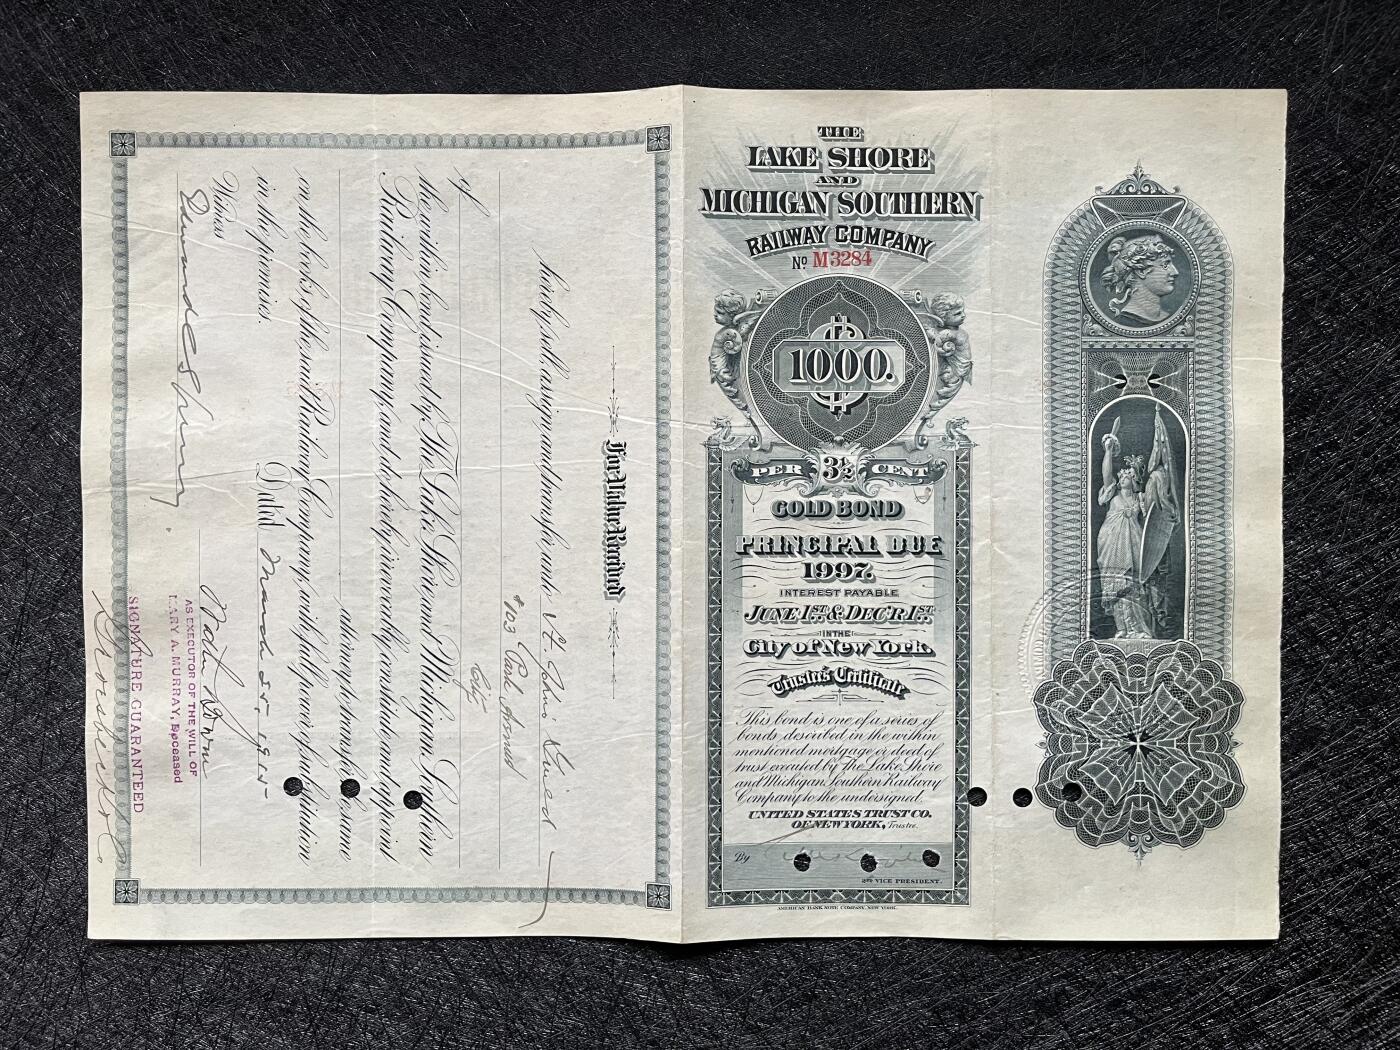 THE
LAKE SHORE
AND
MICHIGAN SOUTHERN
RAILWAY COMPANY
No M3284
$
1000.
PER 3½ CENT
GOLD BOND
PRINCIPAL DUE
1997.
INTEREST PAYABLE
JUNE 1ST. & DEC'R 1ST.
IN THE
City of New York.
Trustee's Certificate
This bond is one of a series of
bonds described in the within
mentioned mortgage or deed of
trust executed by The Lake Shore
and Michigan Southern Railway
Company to the undersigned.
UNITED STATES TRUST CO.
OF NEW YORK, Trustee.
By
2ND VICE PRESIDENT.
AMERICAN BANK NOTE COMPANY, NEW YORK.
For Value Received
hereby sell, assign and transfer unto St. John's Guild
$103 Park Avenue
City
of
the within bond issued by The Lake Shore and Michigan Southern
Railway Company, and do hereby irrevocably constitute and appoint
attorney to transfer the same
on the books of the said Railway Company, with full power of substitution
in the premises.
Dated March 25, 1915
Witness
AS EXECUTOR OF THE WILL OF
MARY A. MURRAY, Deceased
SIGNATURE GUARANTEED